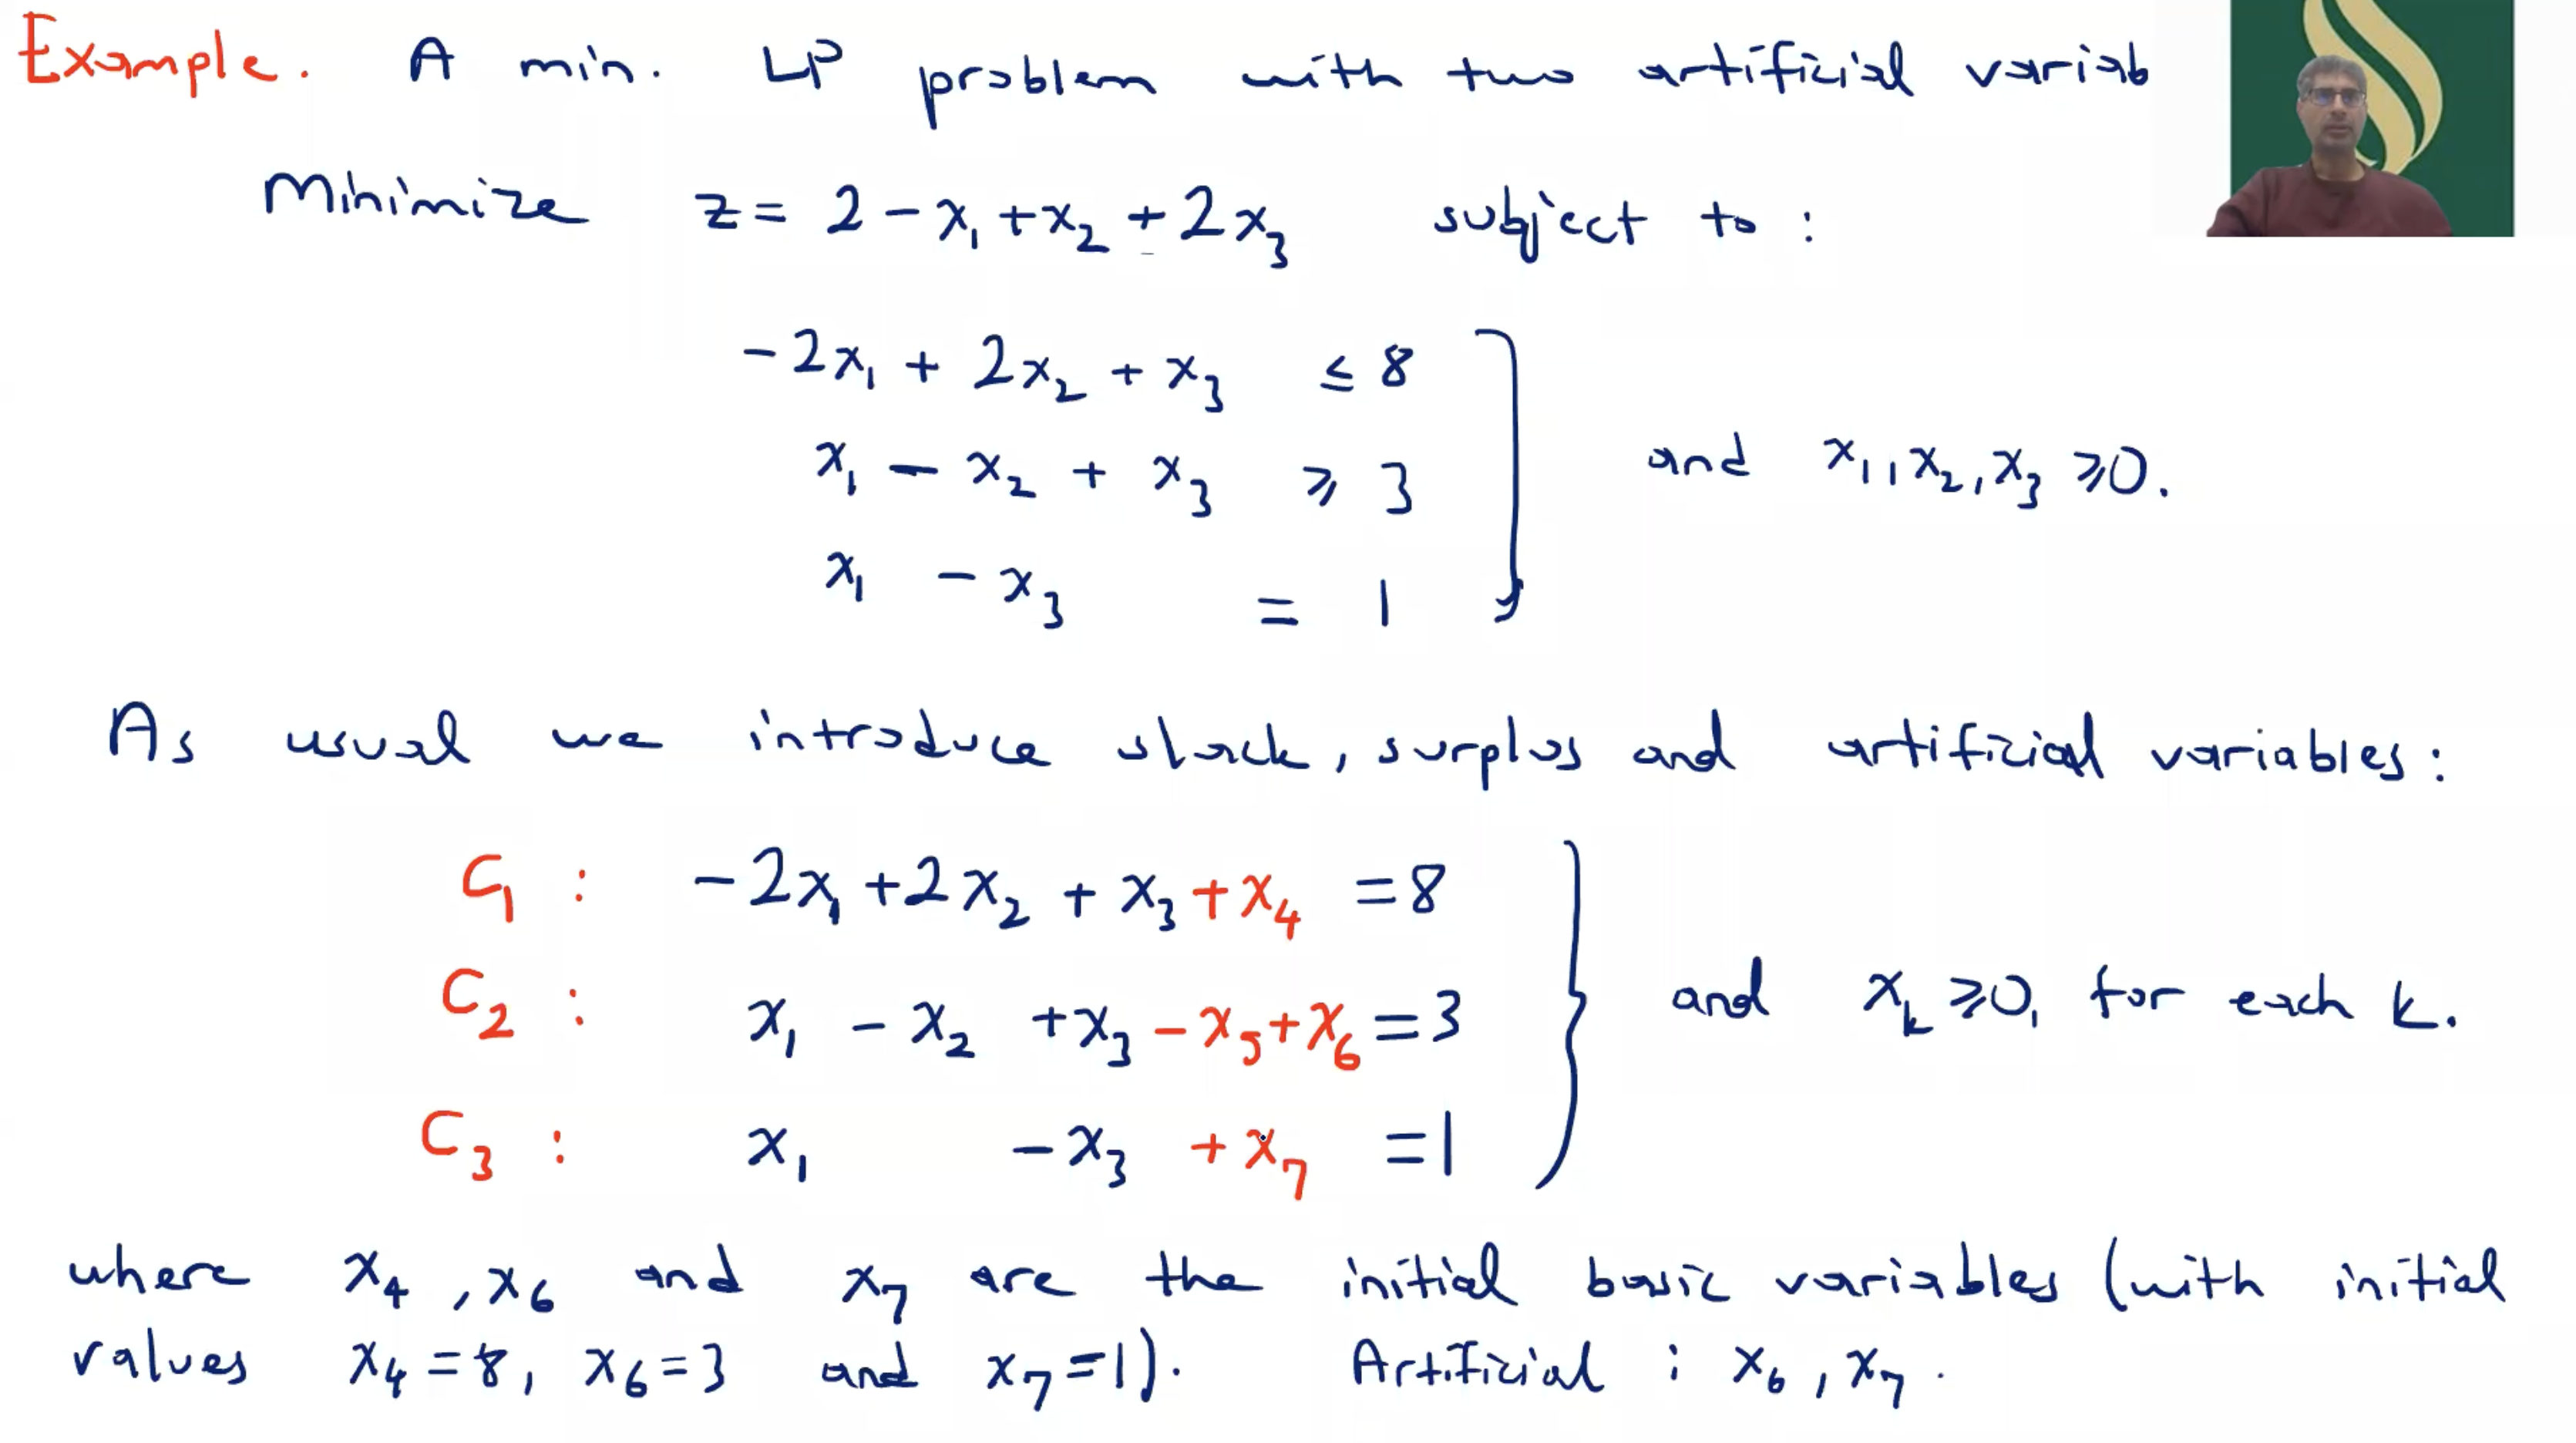 Example. A min. LP problem with two artificial variab
Minimize z = 2 - x₁ + x₂ + 2x₃ subject to :
-2x₁ + 2x₂ + x₃ ≤ 8
x₁ - x₂ + x₃ ≥ 3 and x₁, x₂, x₃ ≥ 0.
x₁ - x₃ = 1
As usual we introduce slack, surplus and artificial variables :
C₁ : -2x₁ + 2x₂ + x₃ + x₄ = 8
C₂ : x₁ - x₂ + x₃ - x₅ + x₆ = 3 and xₖ ≥ 0, for each k.
C₃ : x₁ - x₃ + x₇ = 1
where x₄, x₆ and x₇ are the initial basic variables (with initial
values x₄ = 8, x₆ = 3 and x₇ = 1). Artificial : x₆, x₇.